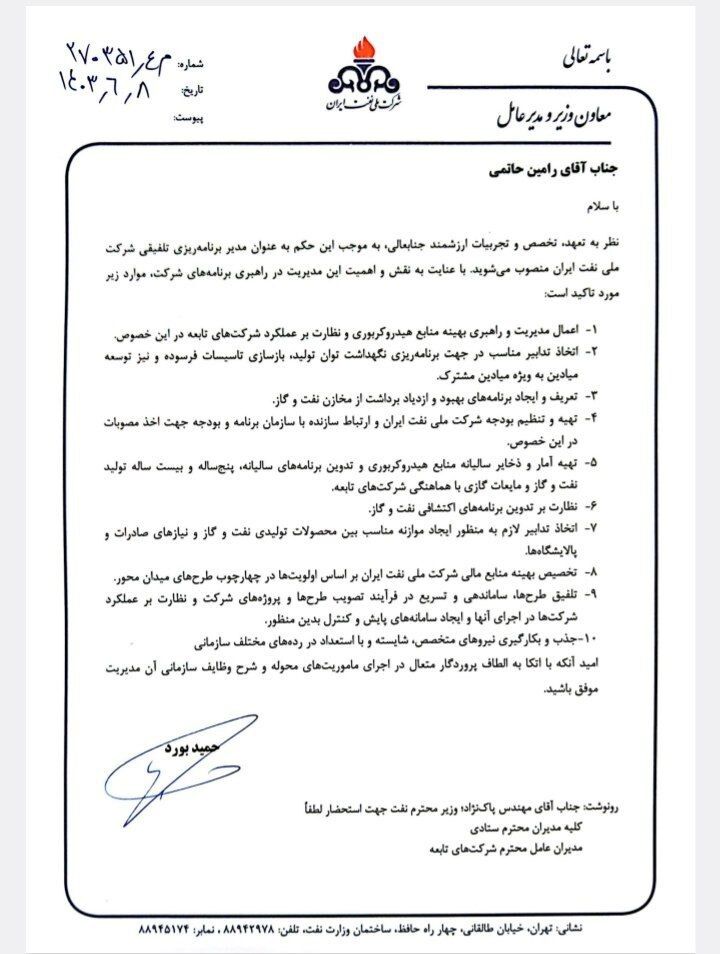 باسمه تعالی
معاون وزیر و مدیر عامل
شرکت ملی نفت ایران
شماره: م ۴٫۲۷۰۳۵۱
تاریخ: ۱۴۰۳٫۶٫۸
پیوست:
جناب آقای رامین حاتمی
با سلام
نظر به تعهد، تخصص و تجربیات ارزشمند جنابعالی، به موجب این حکم به عنوان مدیر برنامه‌ریزی تلفیقی شرکت
ملی نفت ایران منصوب می‌شوید. با عنایت به نقش و اهمیت این مدیریت در راهبری برنامه‌های شرکت، موارد زیر
مورد تاکید است:
۱- اعمال مدیریت و راهبری بهینه منابع هیدروکربوری و نظارت بر عملکرد شرکت‌های تابعه در این خصوص.
۲- اتخاذ تدابیر مناسب در جهت برنامه‌ریزی نگهداشت توان تولید، بازسازی تاسیسات فرسوده و نیز توسعه
میادین به ویژه میادین مشترک.
۳- تعریف و ایجاد برنامه‌های بهبود و ازدیاد برداشت از مخازن نفت و گاز.
۴- تهیه و تنظیم بودجه شرکت ملی نفت ایران و ارتباط سازنده با سازمان برنامه و بودجه جهت اخذ مصوبات
در این خصوص.
۵- تهیه آمار و ذخایر سالیانه منابع هیدروکربوری و تدوین برنامه‌های سالیانه، پنج‌ساله و بیست ساله تولید
نفت و گاز و مایعات گازی با هماهنگی شرکت‌های تابعه.
۶- نظارت بر تدوین برنامه‌های اکتشافی نفت و گاز.
۷- اتخاذ تدابیر لازم به منظور ایجاد موازنه مناسب بین محصولات تولیدی نفت و گاز و نیازهای صادرات و
پالایشگاه‌ها.
۸- تخصیص بهینه منابع مالی شرکت ملی نفت ایران بر اساس اولویت‌ها در چهارچوب طرح‌های میدان محور.
۹- تلفیق طرح‌ها، ساماندهی و تسریع در فرآیند تصویب طرح‌ها و پروژه‌های شرکت و نظارت بر عملکرد
شرکت‌ها در اجرای آنها و ایجاد سامانه‌های پایش و کنترل بدین منظور.
۱۰-جذب و بکارگیری نیروهای متخصص، شایسته و با استعداد در رده‌های مختلف سازمانی
امید آنکه با اتکا به الطاف پروردگار متعال در اجرای ماموریت‌های محوله و شرح وظایف سازمانی آن مدیریت
موفق باشید.
حمید بورد
رونوشت: جناب آقای مهندس پاک‌نژاد؛ وزیر محترم نفت جهت استحضار لطفاً
کلیه مدیران محترم ستادی
مدیران عامل محترم شرکت‌های تابعه
نشانی: تهران، خیابان طالقانی، چهار راه حافظ، ساختمان وزارت نفت، تلفن: ۸۸۹۴۲۹۷۸ ، نمابر: ۸۸۹۴۵۱۷۴